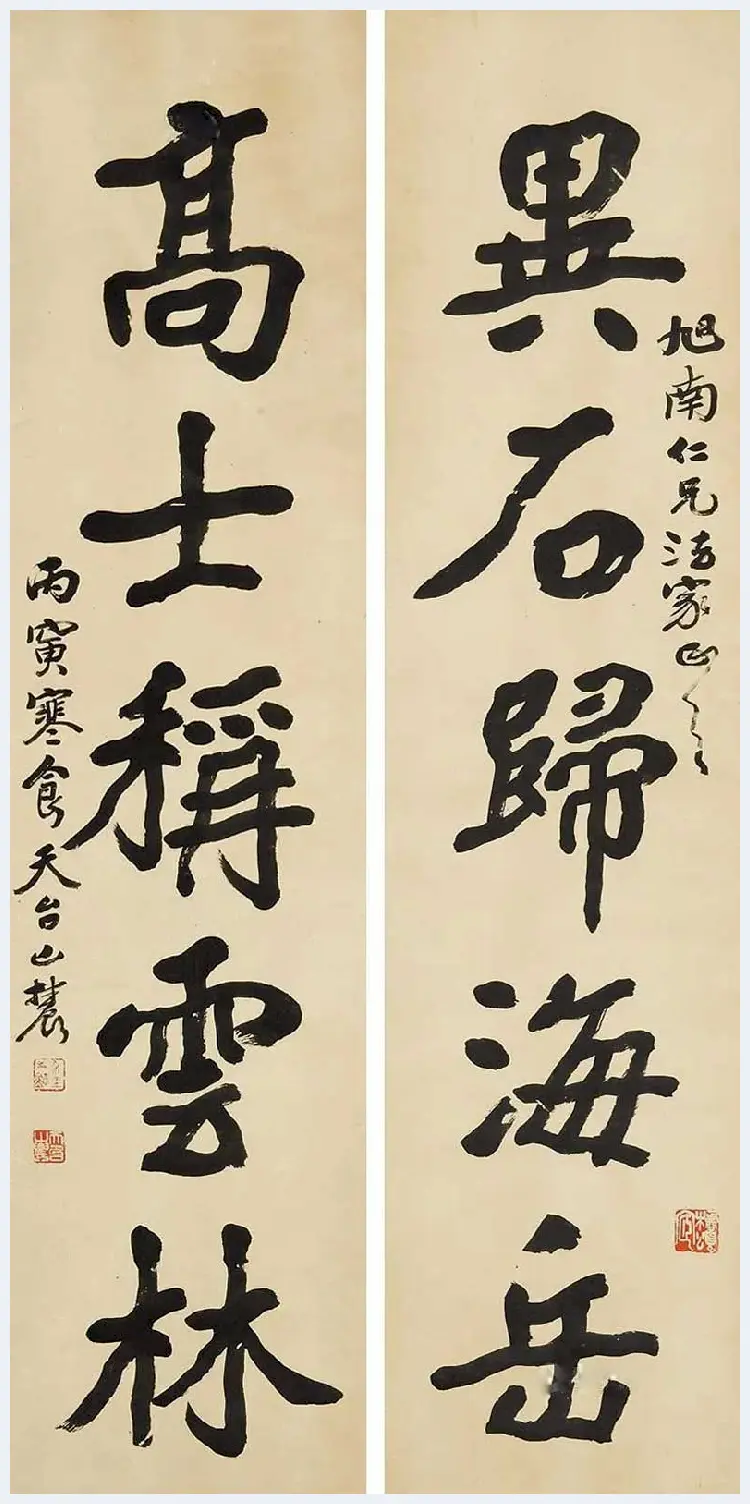 異石歸海岳
旭南仁兄法家正之
髙士稱雲林
丙寅寒食天台山農